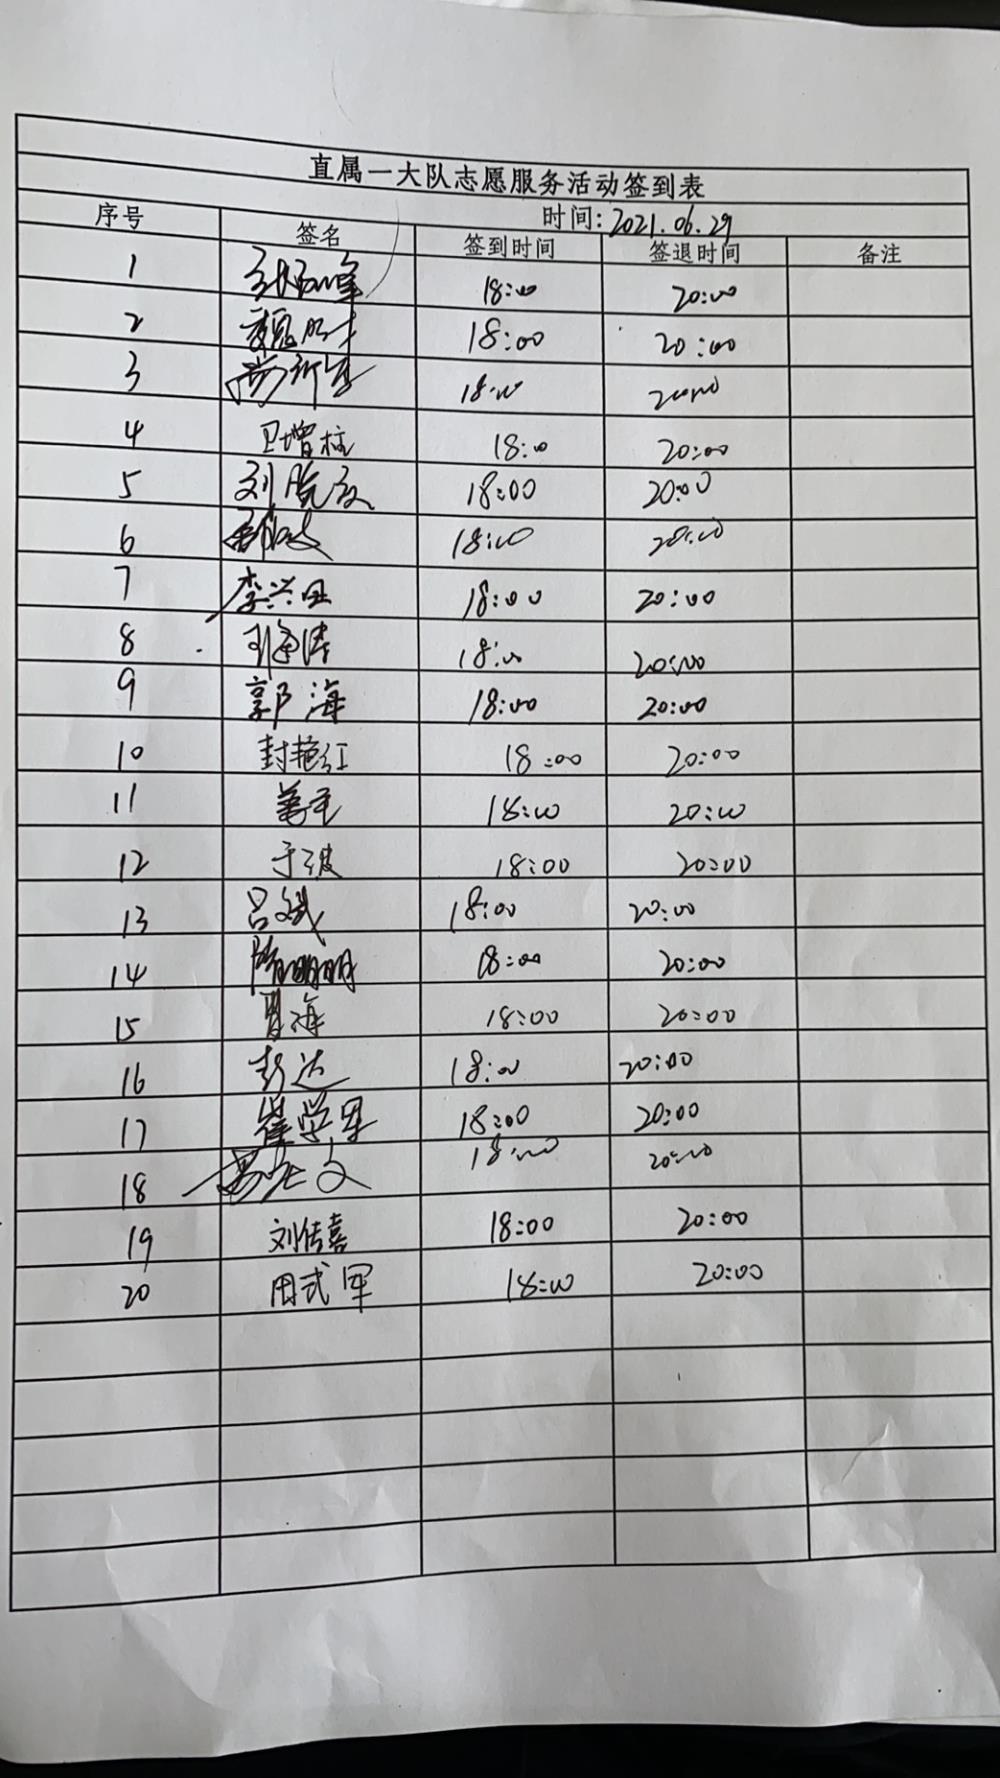 直属一大队志愿服务活动签到表
时间:2021.06.29
序号 签名 签到时间 签退时间 备注
1 18:00 20:00
2 18:00 20:00
3 18:00 20:00
4 卫增柱 18:00 20:00
5 18:00 20:00
6 18:00 20:00
7 李兴田 18:00 20:00
8 18:00 20:00
9 郭海 18:00 20:00
10 封艳红 18:00 20:00
11 18:00 20:00
12 于波 18:00 20:00
13 吕文斌 18:00 20:00
14 隋明明 18:00 20:00
15 18:00 20:00
16 彭达 18:00 20:00
17 崔学军 18:00 20:00
18 18:00 20:00
19 刘传喜 18:00 20:00
20 周式军 18:00 20:00